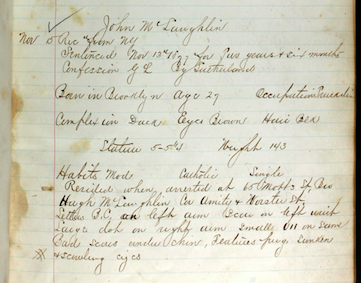 John McLaughlin
Nov 5 Rec from NY
Sentenced Nov 13th 1877 for five years & six months
Confession G L By Sutherland
Born in Brooklyn Age 29 Occupation
Complexion Dark Eyes Brown Hair Blk
Stature 5-5¾ Weight 143
Habits Mod Catholic Single
Resided when arrested at 65 Mott St, Bro
Hugh McLaughlin Cor Amity & Worster St,
Letters B.C, on left arm Scar on left wrist
Large dot on right arm small on same
Bad scars under chin, Features pug, Sunken
& scowling eyes